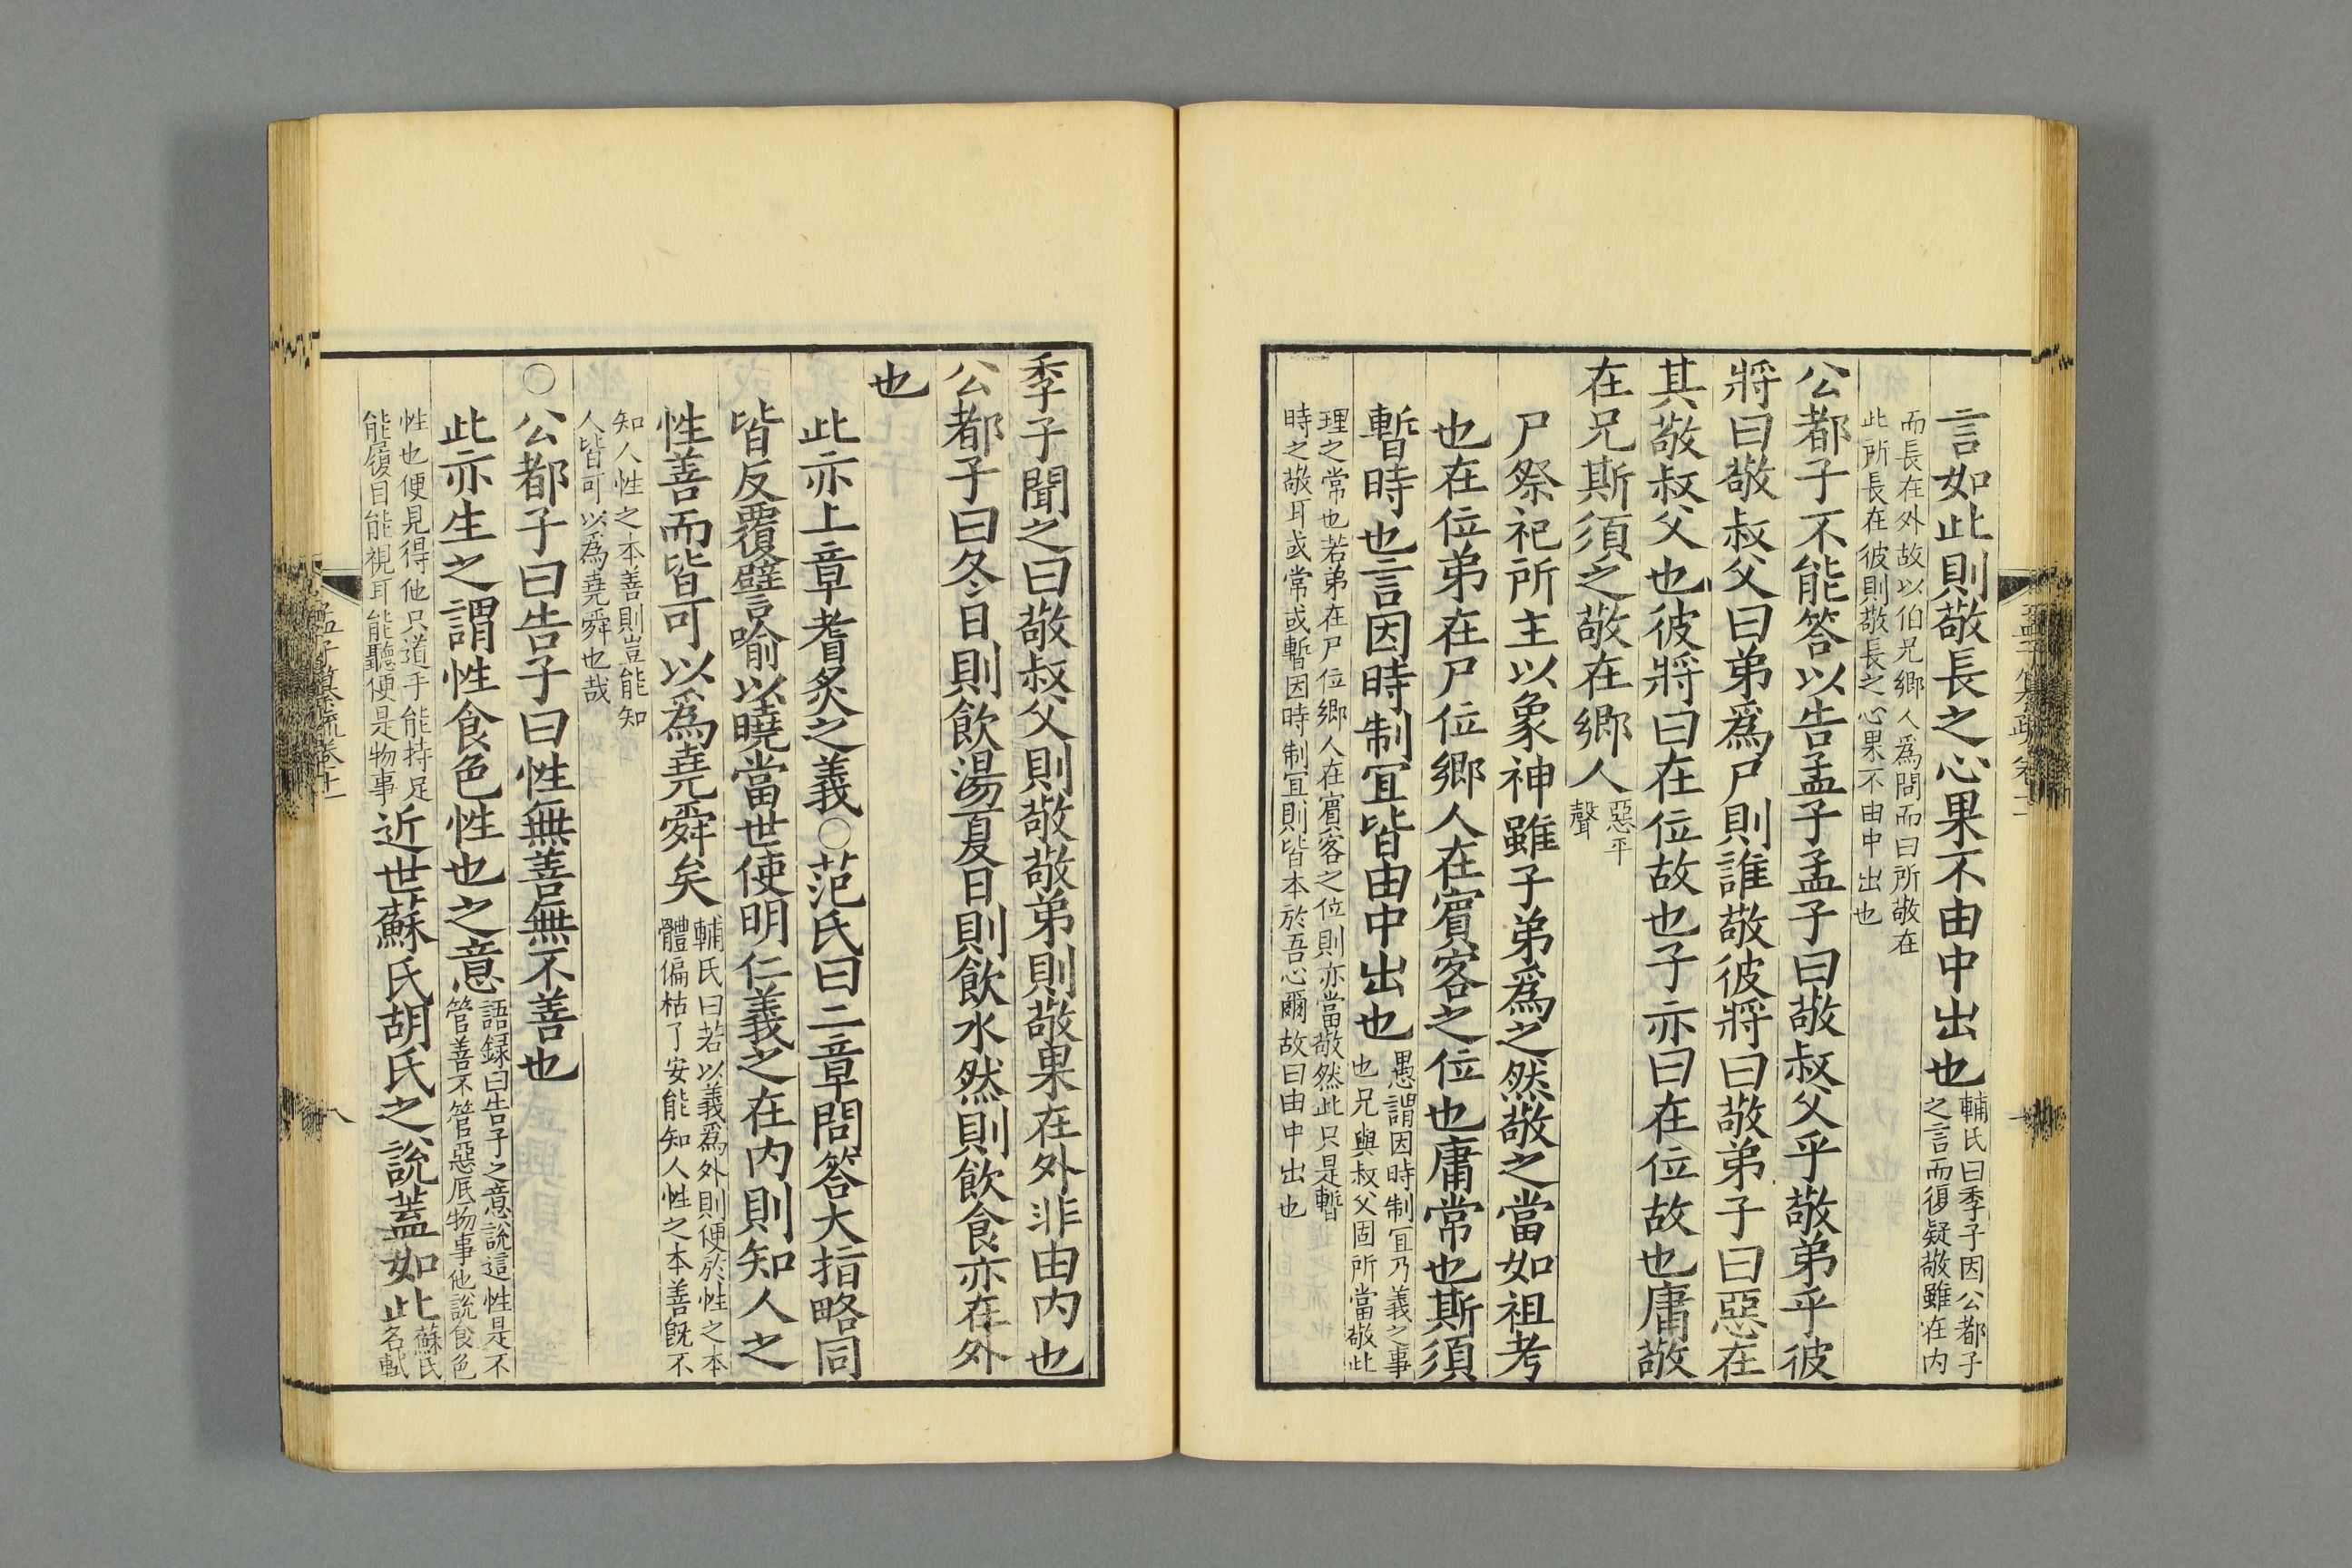 言如此則敬長之心果不由中出也
輔氏曰季子因公都子
之言而復疑敬雖在内
而長在外故以伯兄鄉人爲問而曰所敬在
此所長在彼則敬長之心果不由中出也
公都子不能答以告孟子孟子曰敬叔父乎敬弟乎彼
將曰敬叔父曰弟爲尸則誰敬彼將曰敬弟子曰惡在
其敬叔父也彼將曰在位故也子亦曰在位故也庸敬
在兄斯須之敬在鄉人
惡平
聲
尸祭祀所主以象神雖子弟爲之然敬之當如祖考
也在位弟在尸位鄉人在賓客之位也庸常也斯須
暫時也言因時制冝皆由中出也
愚謂因時制冝乃義之事
也兄與叔父固所當敬此
理之常也若弟在尸位鄉人在賓客之位則亦當敬然此只是暫
時之敬耳或常或暫因時制冝則皆本於吾心爾故曰由中出也
季子聞之曰敬叔父則敬敬弟則敬果在外非由内也
公都子曰冬日則飲湯夏日則飲水然則飲食亦在外
也
此亦上章耆炙之義○范氏曰二章問答大指略同
皆反覆譬喻以曉當世使明仁義之在内則知人之
性善而皆可以爲堯舜矣
輔氏曰若以義爲外則便於性之本
體偏枯了安能知人性之本善既不
知人性之本善則豈能知
人皆可以爲堯舜也哉
○公都子曰告子曰性無善無不善也
此亦生之謂性食色性也之意
語録曰告子之意說這性是不
管善不管惡底物事他說食色
性也便見得他只道手能持足
能履目能視耳能聽便是物事
近世蘇氏胡氏之說蓋如此
蘇氏
名軾
孟子纂疏卷十一
八